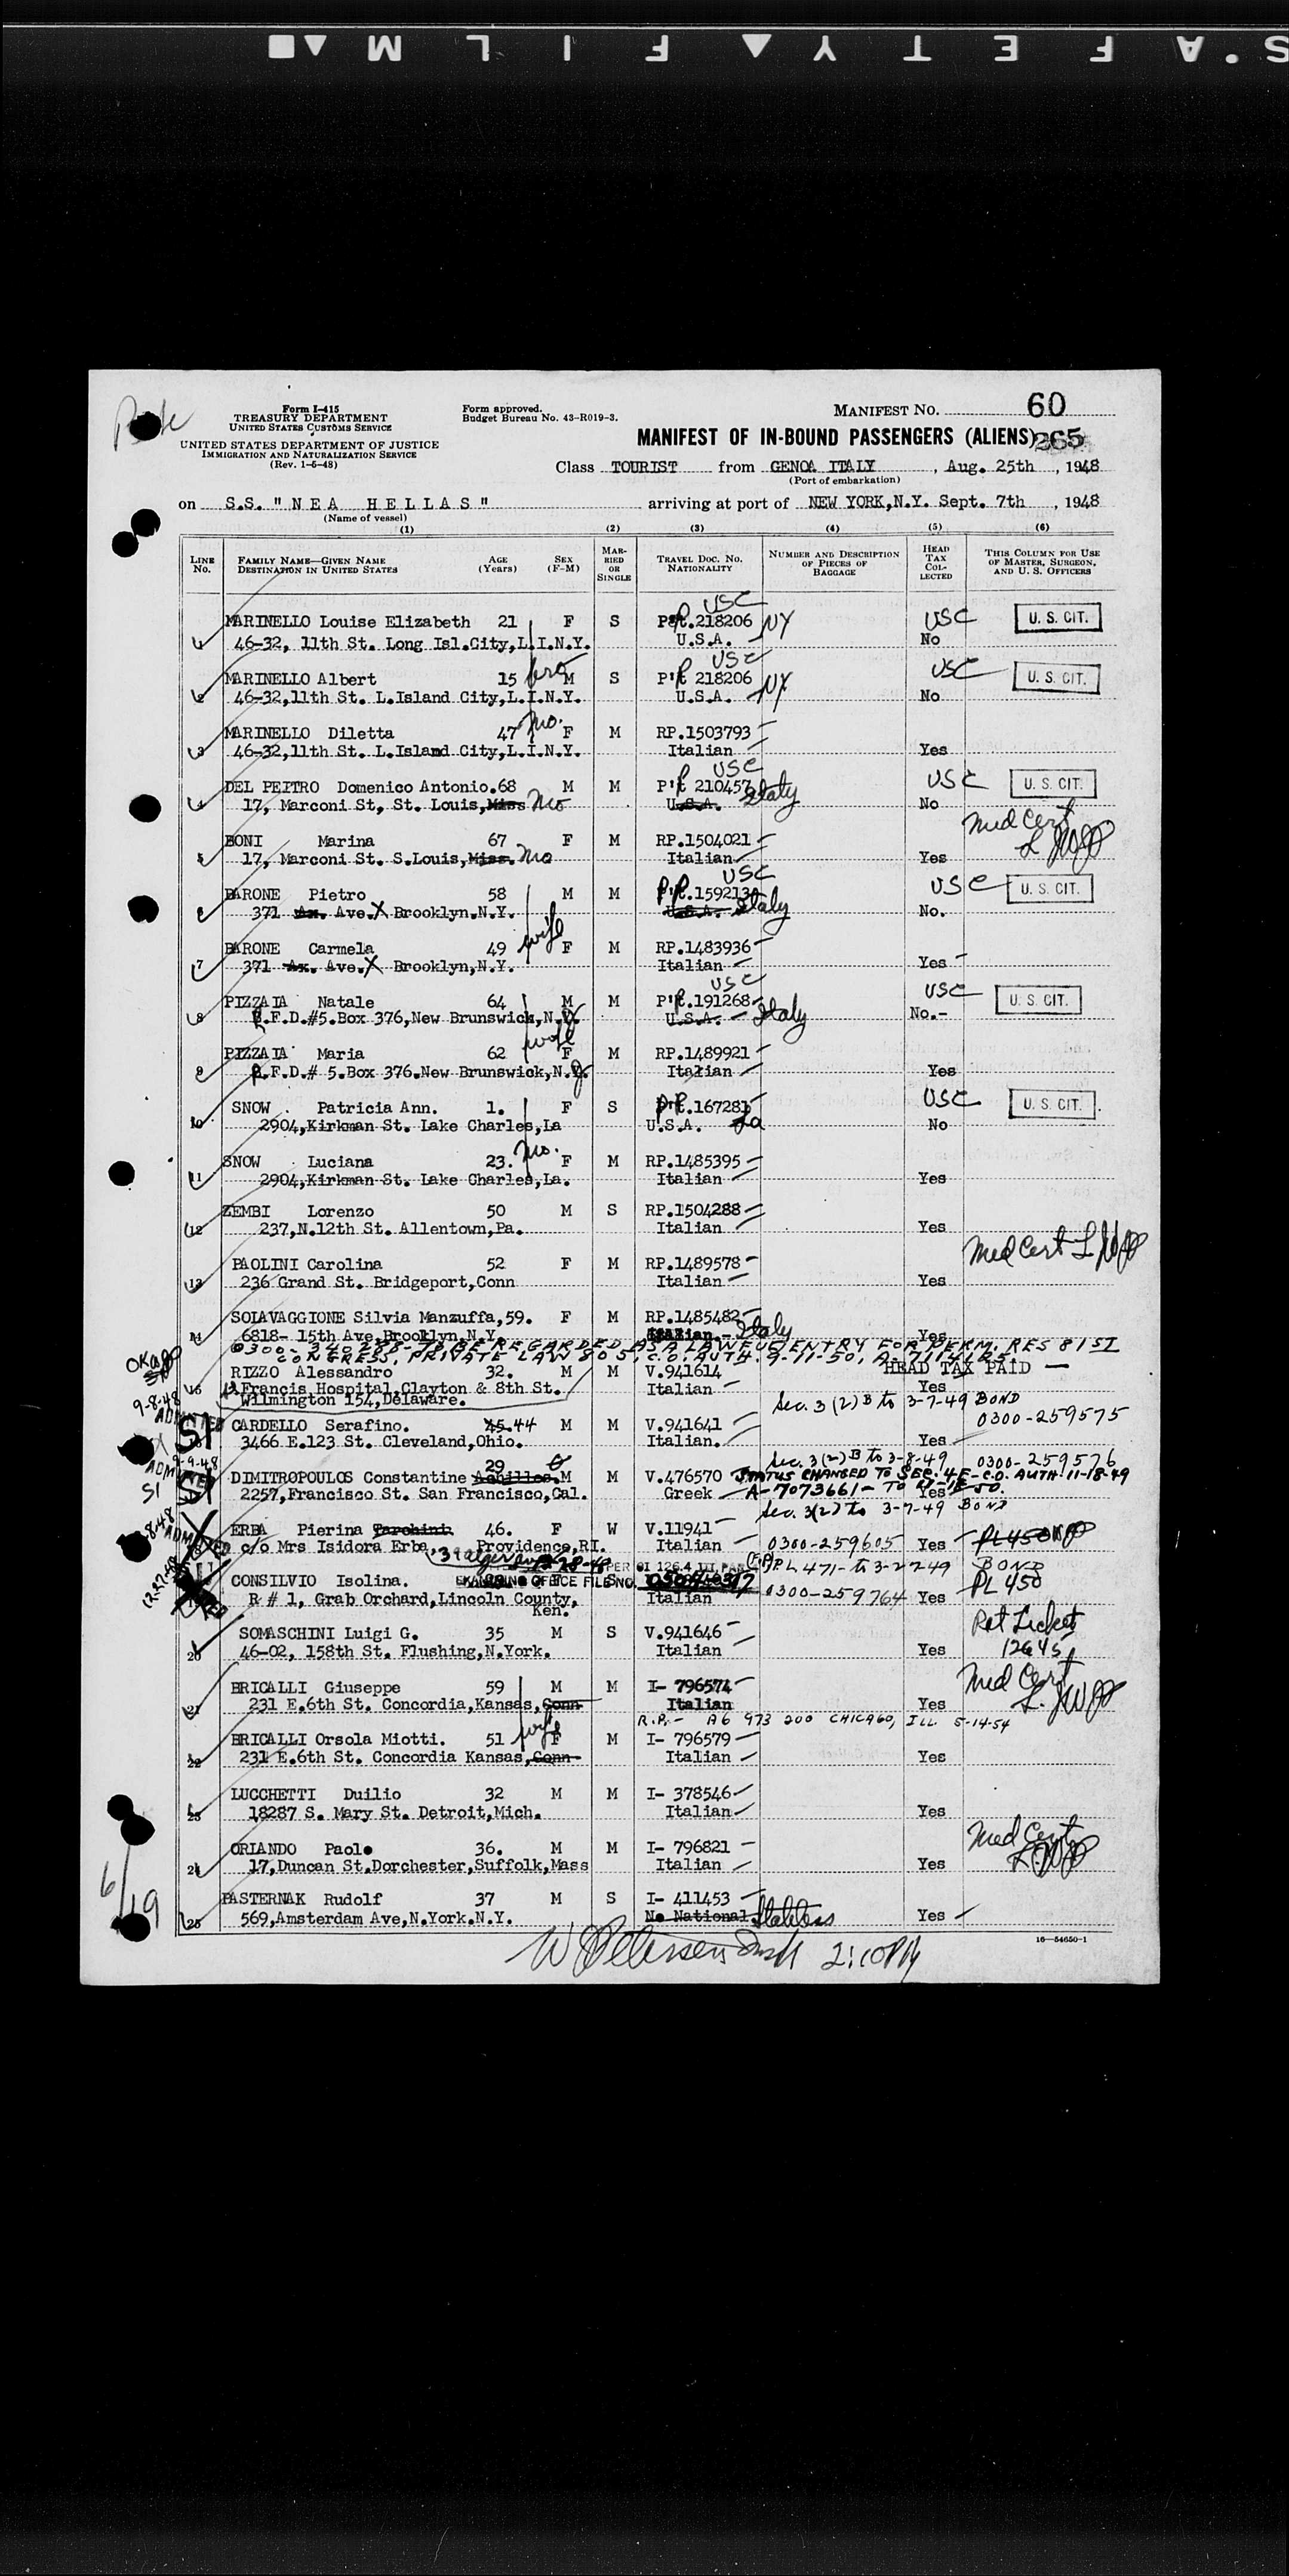 S.'AFETY▲FILM
Form I-415
TREASURY DEPARTMENT
UNITED STATES CUSTOMS SERVICE
UNITED STATES DEPARTMENT OF JUSTICE
IMMIGRATION AND NATURALIZATION SERVICE
(Rev. 1-5-48)
Form approved.
Budget Bureau No. 43-R019-3.
MANIFEST NO. 60
MANIFEST OF IN-BOUND PASSENGERS (ALIENS) 265
Class TOURIST from GENOA ITALY, Aug. 25th, 1948
(Port of embarkation)
on S.S. "NEA HELLAS" arriving at port of NEW YORK,N.Y. Sept. 7th, 1948
(Name of vessel)
(1) (2) (3) (4) (5) (6)
LINE No. FAMILY NAME—GIVEN NAME DESTINATION IN UNITED STATES AGE (Years) SEX (F-M) MARRIED OR SINGLE TRAVEL DOC. NO. NATIONALITY NUMBER AND DESCRIPTION OF PIECES OF BAGGAGE HEAD TAX COLLECTED THIS COLUMN FOR USE OF MASTER, SURGEON, AND U. S. OFFICERS
USC
MARINELLO Louise Elizabeth 21 F S P.218206 NY USC U. S. CIT.
1 46-32, 11th St. Long Isl.City,L.I.N.Y. U.S.A. No
bro USC
MARINELLO Albert 15 M S P 218206 NY USC U. S. CIT.
2 46-32,11th St. L.Island City,L.I.N.Y. U.S.A. No
mo.
MARINELLO Diletta 47 F M RP.1503793
3 46-32,11th St. L.Island City,L.I.N.Y. Italian Yes
USC
DEL PEITRO Domenico Antonio.68 M M P 210457 Italy USC U. S. CIT.
4 17, Marconi St, St. Louis,Miss Mo U.S.A. No
BONI Marina 67 F M RP.1504021 Med Cert
5 17, Marconi St. S.Louis,Miss. Mo Italian Yes
USC
BARONE Pietro 58 M M P.159213 Italy USC U. S. CIT.
6 371 Ax. Ave.X Brooklyn.N.Y. U.S.A. No.
wife
BARONE Carmela 49 F M RP.1483936
7 371 Ax. Ave.X Brooklyn,N.Y. Italian Yes
USC
PIZZAIA Natale 64 M M P.191268 Italy USC U. S. CIT.
8 R.F.D.#5.Box 376,New Brunswick,N.J. U.S.A. No.-
wife
PIZZAIA Maria 62 F M RP.1489921
9 R.F.D.# 5.Box 376.New Brunswick,N.J. Italian Yes
SNOW Patricia Ann. 1. F S P.167281 La USC U. S. CIT.
10 2904,Kirkman St. Lake Charles,La U.S.A. No
mo.
SNOW Luciana 23. F M RP.1485395
11 2904,Kirkman St. Lake Charles,La. Italian Yes
ZEMBI Lorenzo 50 M S RP.1504288
12 237,N.12th St. Allentown,Pa. Italian Yes
PAOLINI Carolina 52 F M RP.1489578 Med Cert
13 236 Grand St. Bridgeport,Conn Italian Yes
SOIAVAGGIONE Silvia Manzuffa,59. F M RP.1485482 Italy
14 6818- 15th Ave,Brooklyn,N.Y. Italian. Yes
0300-340288-TO BE REGARDED AS A LAWFUL ENTRY FOR PERM. RES 81ST
CONGRESS, PRIVATE LAW 805, C.O. AUTH. 9-11-50, A-7114125.
HEAD TAX PAID
RIZZO Alessandro 32. M M V.941614
Francis Hospital,Clayton & 8th St. Italian Yes
Wilmington 154,Delaware. Sec. 3 (2) B to 3-7-49 BOND
9-8-48
CARDELLO Serafino. 45. 44 M M V.941641 0300-259575
SI 3466 E.123 St. Cleveland,Ohio. Italian. Yes
29 Sec. 3(2) B to 3-8-49 0300-259576
DIMITROPOULOS Constantine Achilles. M M V.476570 STATUS CHANGED TO SEC. 4E-C.O. AUTH-11-18-49
SI 2257,Francisco St. San Francisco,Cal. Greek A-7073661- Yes
Sec. 3(2) to 3-7-49 BOND
ERBA Pierina Tarchini. 46. F W V.11941 PL 450
c/o Mrs Isidora Erba, Providence,RI. Italian 0300-259605 Yes
PL 471- to 3-2-49 BOND
CONSILVIO Isolina. EXAMINING OFFICE FILE NO. PL 450
R # 1, Grab Orchard,Lincoln County, Italian 0300-259764 Yes
Ken.
SOMASCHINI Luigi G. 35 M S V.941646 Ret Ticket
20 46-02, 158th St. Flushing,N.York. Italian Yes 12645
BRICALLI Giuseppe 59 M M I- 796574 Med Cert
21 231 E.6th St. Concordia,Kansas,Conn Italian Yes
R.P.- A6 973 200 CHICAGO, ILL 5-14-54
wife
BRICALLI Orsola Miotti. 51 F M I- 796579
22 231 E.6th St. Concordia Kansas,Conn- Italian Yes
LUCCHETTI Duilio 32 M M I- 378546
23 18287 S. Mary St. Detroit,Mich. Italian Yes
ORIANDO Paolo 36. M M I- 796821 Med Cert
24 17,Duncan St.Dorchester,Suffolk,Mass Italian Yes
PASTERNAK Rudolf 37 M S I- 411453
25 569,Amsterdam Ave,N.York.N.Y. No National Stateless Yes
6/19
16—54650-1
W Petersen 2:10 PM